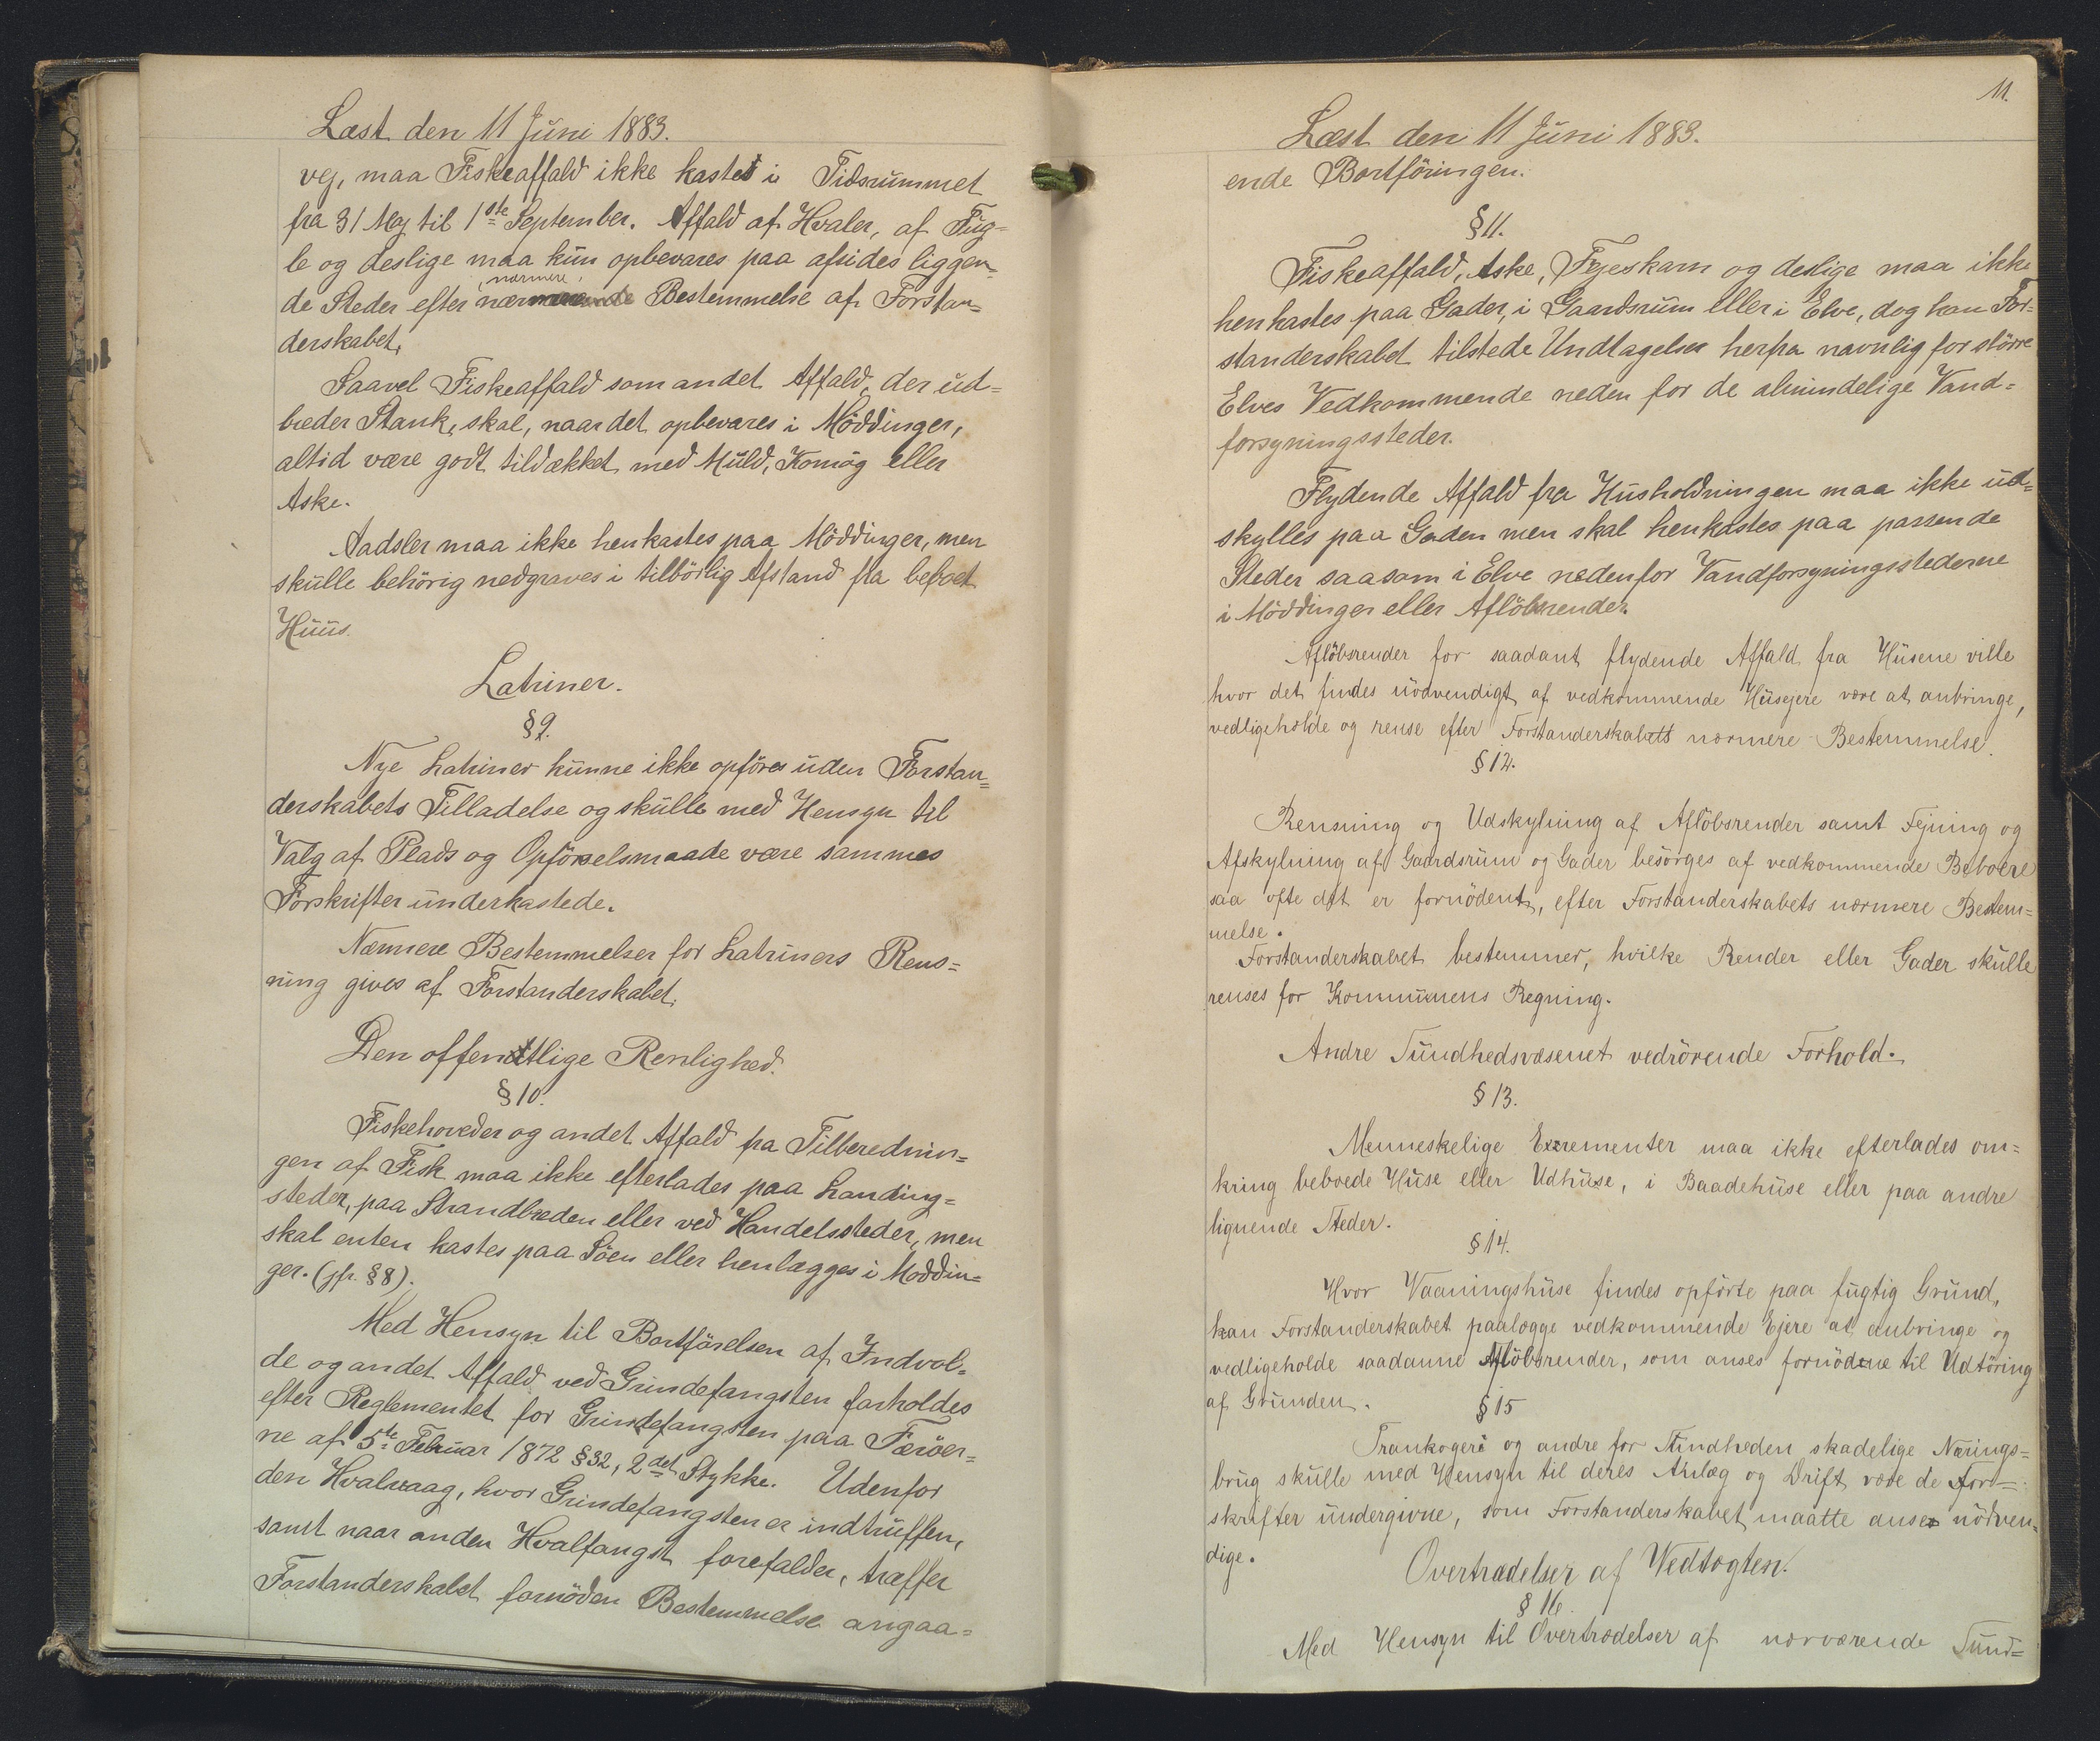 Læst den 11 Juni 1883.
vej, maa Fiskeaffald ikke kastes i Tidsrummet
fra 31 Maj til 1ste September. Affald af Hvaler, af Fug-
le og deslige maa kun opbevares paa afsides liggen-
nærmere
de Steder efter Bestemmelse af Forstan-
derskabet.
Saavel Fiskeaffald som andet Affald, der ud-
breder Stank, skal, naar det opbevares i Möddinger,
altid være godt tildækket med Muld, Komög eller
Aske.
Aadsler maa ikke henkastes paa Möddinger, men
skulle behörig nedgraves i tilbörlig Afstand fra beboet
Huus.
Latriner.
§ 9.
Nye Latriner kunne ikke opföres uden Forstan-
derskabets Tilladelse og skulle med Hensyn til
Valg af Plads og Opförelsmaade være sammes
Forskrifter underkastede.
Nærmere Bestemmelser for Latriners Rens-
ning gives af Forstanderskabet.
Den offentlige Renlighed.
§ 10.
Fiskehoveder og andet Affald fra Tilberednin-
gen af Fisk maa ikke efterlades paa Landing-
steder, paa Strandbreden eller ved Handelssteder, men
skal enten kastes paa Söen eller henlægges i Möddin-
ger. (jfr. § 8).
Med Hensyn til Bortförelsen af Indvol-
de og andet Affald ved Grindefangsten forholdes
efter Reglementet for Grindefangsten paa Færöer-
ne af 5te Februar 1872 § 32, 2det Stykke. Udenfor
den Hvalvaag, hvor Grindefangsten er indtruffen,
samt naar anden Hvalfangst forefalder, træffer
Forstanderskabet fornöden Bestemmelse angaa-
11.
Læst den 11 Juni 1883.
ende Bortföringen.
§ 11.
Fiskeaffald, Aske, Fejeskarn og deslige maa ikke
henkastes paa Gader, i Gaardsrum eller i Elve, dog kan For-
standerskabet tilstede Undtagelser herfra navnlig for större
Elves Vedkommende neden for de almindelige Vand-
forsyningssteder.
Flydende Affald fra Husholdningen maa ikke ud-
skylles paa Gaden men skal henkastes paa passende
Steder saasom i Elve nedenfor Vandforsyningsstederne
i Möddinger eller Aflöbsrender.
Aflöbsrender for saadant flydende Affald fra Husene ville
hvor det findes nödvendigt af vedkommende Husejere være at anbringe,
vedligeholde og rense efter Forstanderskabets nærmere Bestemmelse.
§ 12.
Rensning og Udskylning af Aflöbsrender samt Fejning og
Afskylning af Gaardsrum og Gader besörges af vedkommende Beboere
saa ofte det er fornödent, efter Forstanderskabets nærmere Bestem-
melse.
Forstanderskabet bestemmer, hvilke Render eller Gader skulle
renses for Kommunens Regning.
Andre Sundhedsvæsenet vedrörende Forhold.
§ 13.
Menneskelige Excrementer maa ikke efterlades om-
kring beboede Huse eller Udhuse, i Baadehuse eller paa andre
lignende Steder.
§ 14.
Hvor Vaaningshuse findes opförte paa fugtig Grund,
kan Forstanderskabet paalægge vedkommende Ejere at anbringe og
vedligeholde saadanne Aflöbsrender, som anses fornödne til Udtöring
af Grunden.
§ 15
Trankogeri og andre for Sundheden skadelige Nærings-
brug skulle med Hensyn til deres Anlæg og Drift være de For-
skrifter undergivne, som Forstanderskabet maatte anse nödven-
dige.
Overtrædelser af Vedtægten.
§ 16.
Med Hensyn til Overtrædelser af nærværende Sund-